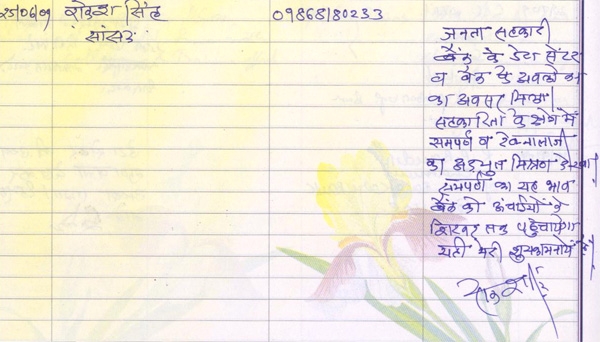 25/06/09 राकेश सिंह 09868180233
सांसद
जनता सहकारी
बैंक के डेटा सेंटर
व बैंक के अवलोकन
का अवसर मिला।
सहकारिता के क्षेत्र में
समर्पण व टेक्नालाजी
का अद्भुत मिश्रण देखा।
समर्पण का यह भाव
बैंक को ऊंचाईयों के
शिखर तक पहुंचायेगा
यही मेरी शुभकामनायें है